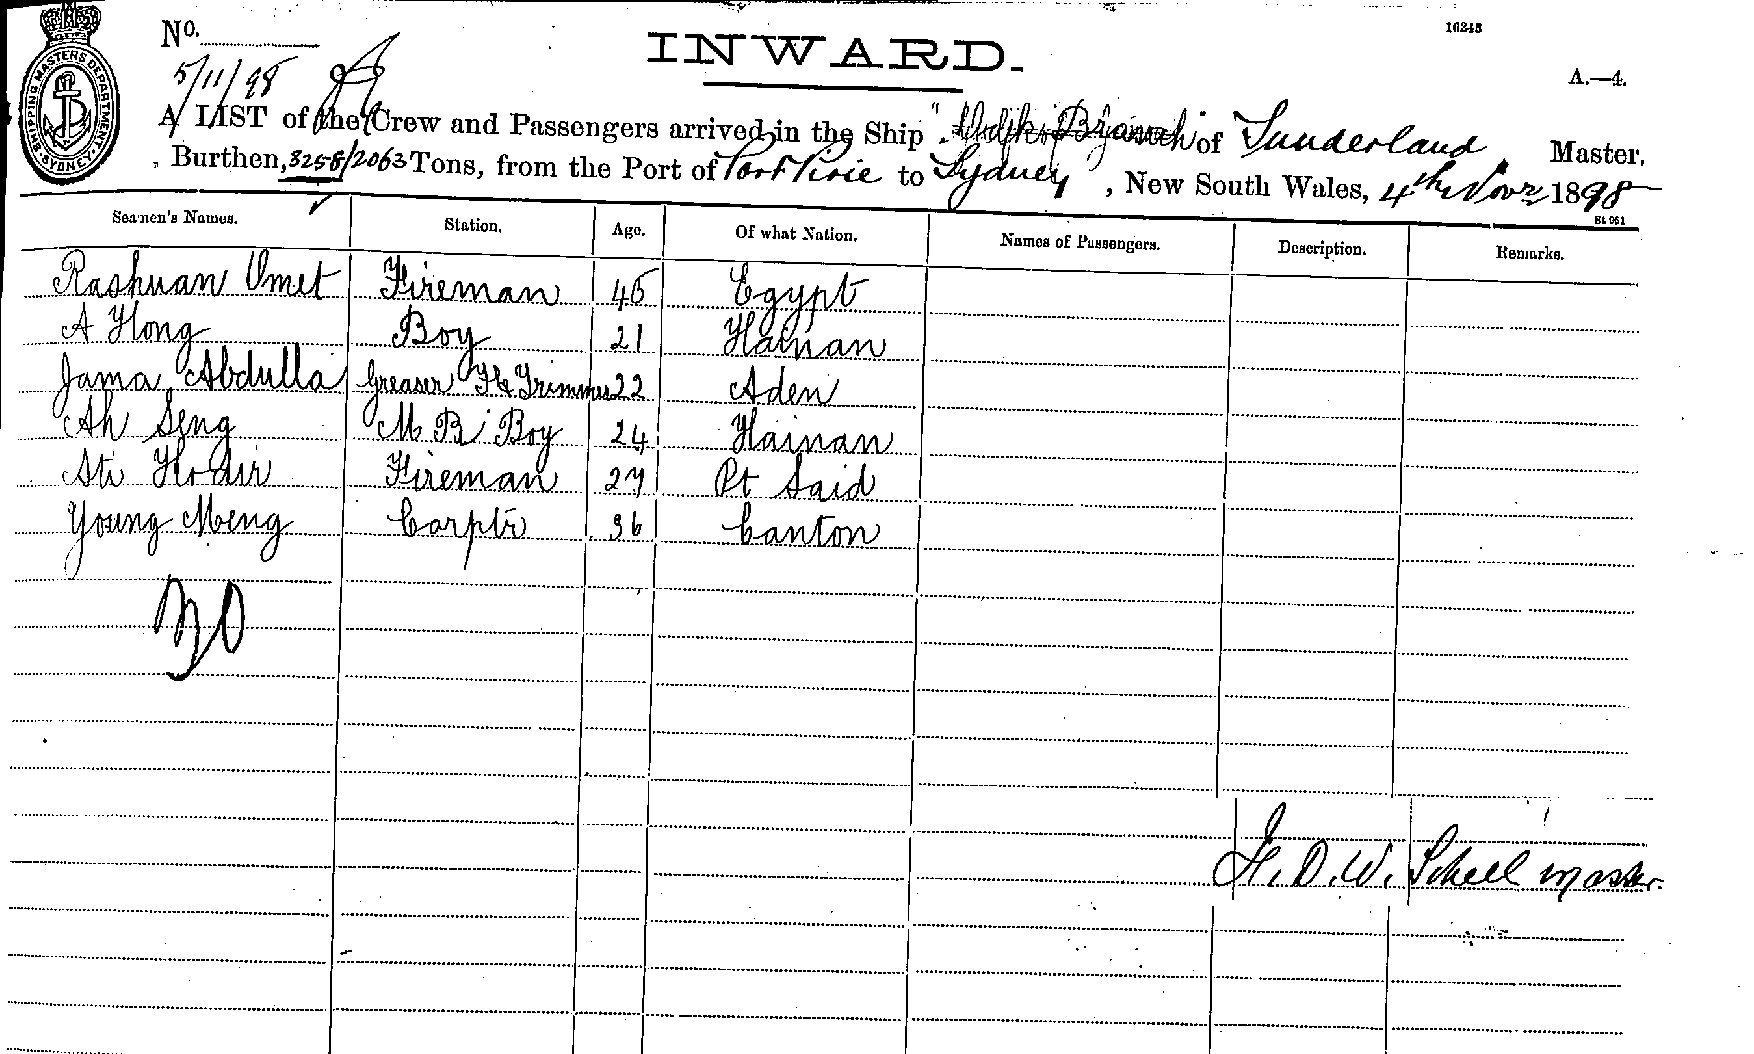 No.
INWARD.
16248
A.—4.
5/11/98
SHIPPING MASTERS DEPARTMENT. SYDNEY.
A LIST of the Crew and Passengers arrived in the Ship " Branch" of Sunderland, Master,
Burthen, 3258/2063 Tons, from the Port of Port Pirie to Sydney, New South Wales, 4th Novr 1898
Seamen's Names. Station. Age. Of what Nation. Names of Passengers. Description. Remarks.
Rashuan Omet Fireman 45 Egypt
A Hong Boy 21 Hainan
Jama Abdulla Greaser & Trimmer 22 Aden
Ah Seng M R Boy 24 Hainan
Fireman 27 Pt Said
Young Meng Carptr 36 Canton
30
H. D. W. Scheel master.